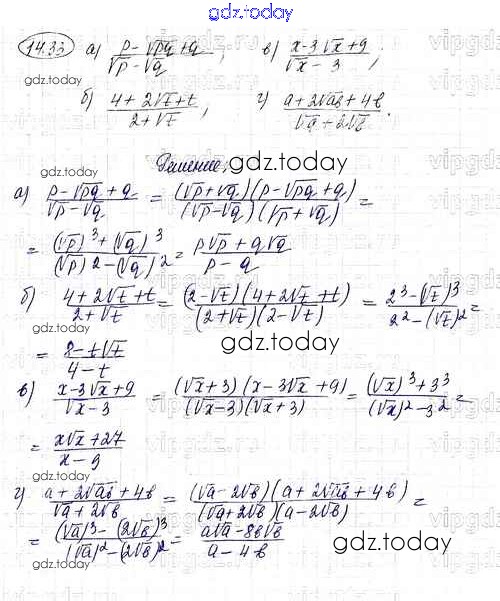 gdz.today
14.33 а) (p - √pq + q)/(√p - √q); в) (x - 3√x + 9)/(√x - 3);
gdz.today
б) (4 + 2√t + t)/(2 + √t); г) (a + 2√ab + 4b)/(√a + 2√b).
Решение:
gdz.today
а) (p - √pq + q)/(√p - √q) = ((√p + √q)(p - √pq + q))/((√p - √q)(√p + √q)) =
= ((√p)^3 + (√q)^3)/((√p)^2 - (√q)^2) = (p√p + q√q)/(p - q)
б) (4 + 2√t + t)/(2 + √t) = ((2 - √t)(4 + 2√t + t))/((2 + √t)(2 - √t)) = (2^3 - (√t)^3)/(2^2 - (√t)^2) =
gdz.today
= (8 - t√t)/(4 - t)
gdz.today
в) (x - 3√x + 9)/(√x - 3) = ((√x + 3)(x - 3√x + 9))/((√x - 3)(√x + 3)) = ((√x)^3 + 3^3)/((√x)^2 - 3^2) =
= (x√x + 27)/(x - 9)
gdz.today
г) (a + 2√ab + 4b)/(√a + 2√b) = ((√a - 2√b)(a + 2√ab + 4b))/((√a + 2√b)(a - 2√b)) =
= ((√a)^3 - (2√b)^3)/((√a)^2 - (2√b)^2) = (a√a - 8b√b)/(a - 4b)
gdz.today
gdz.today